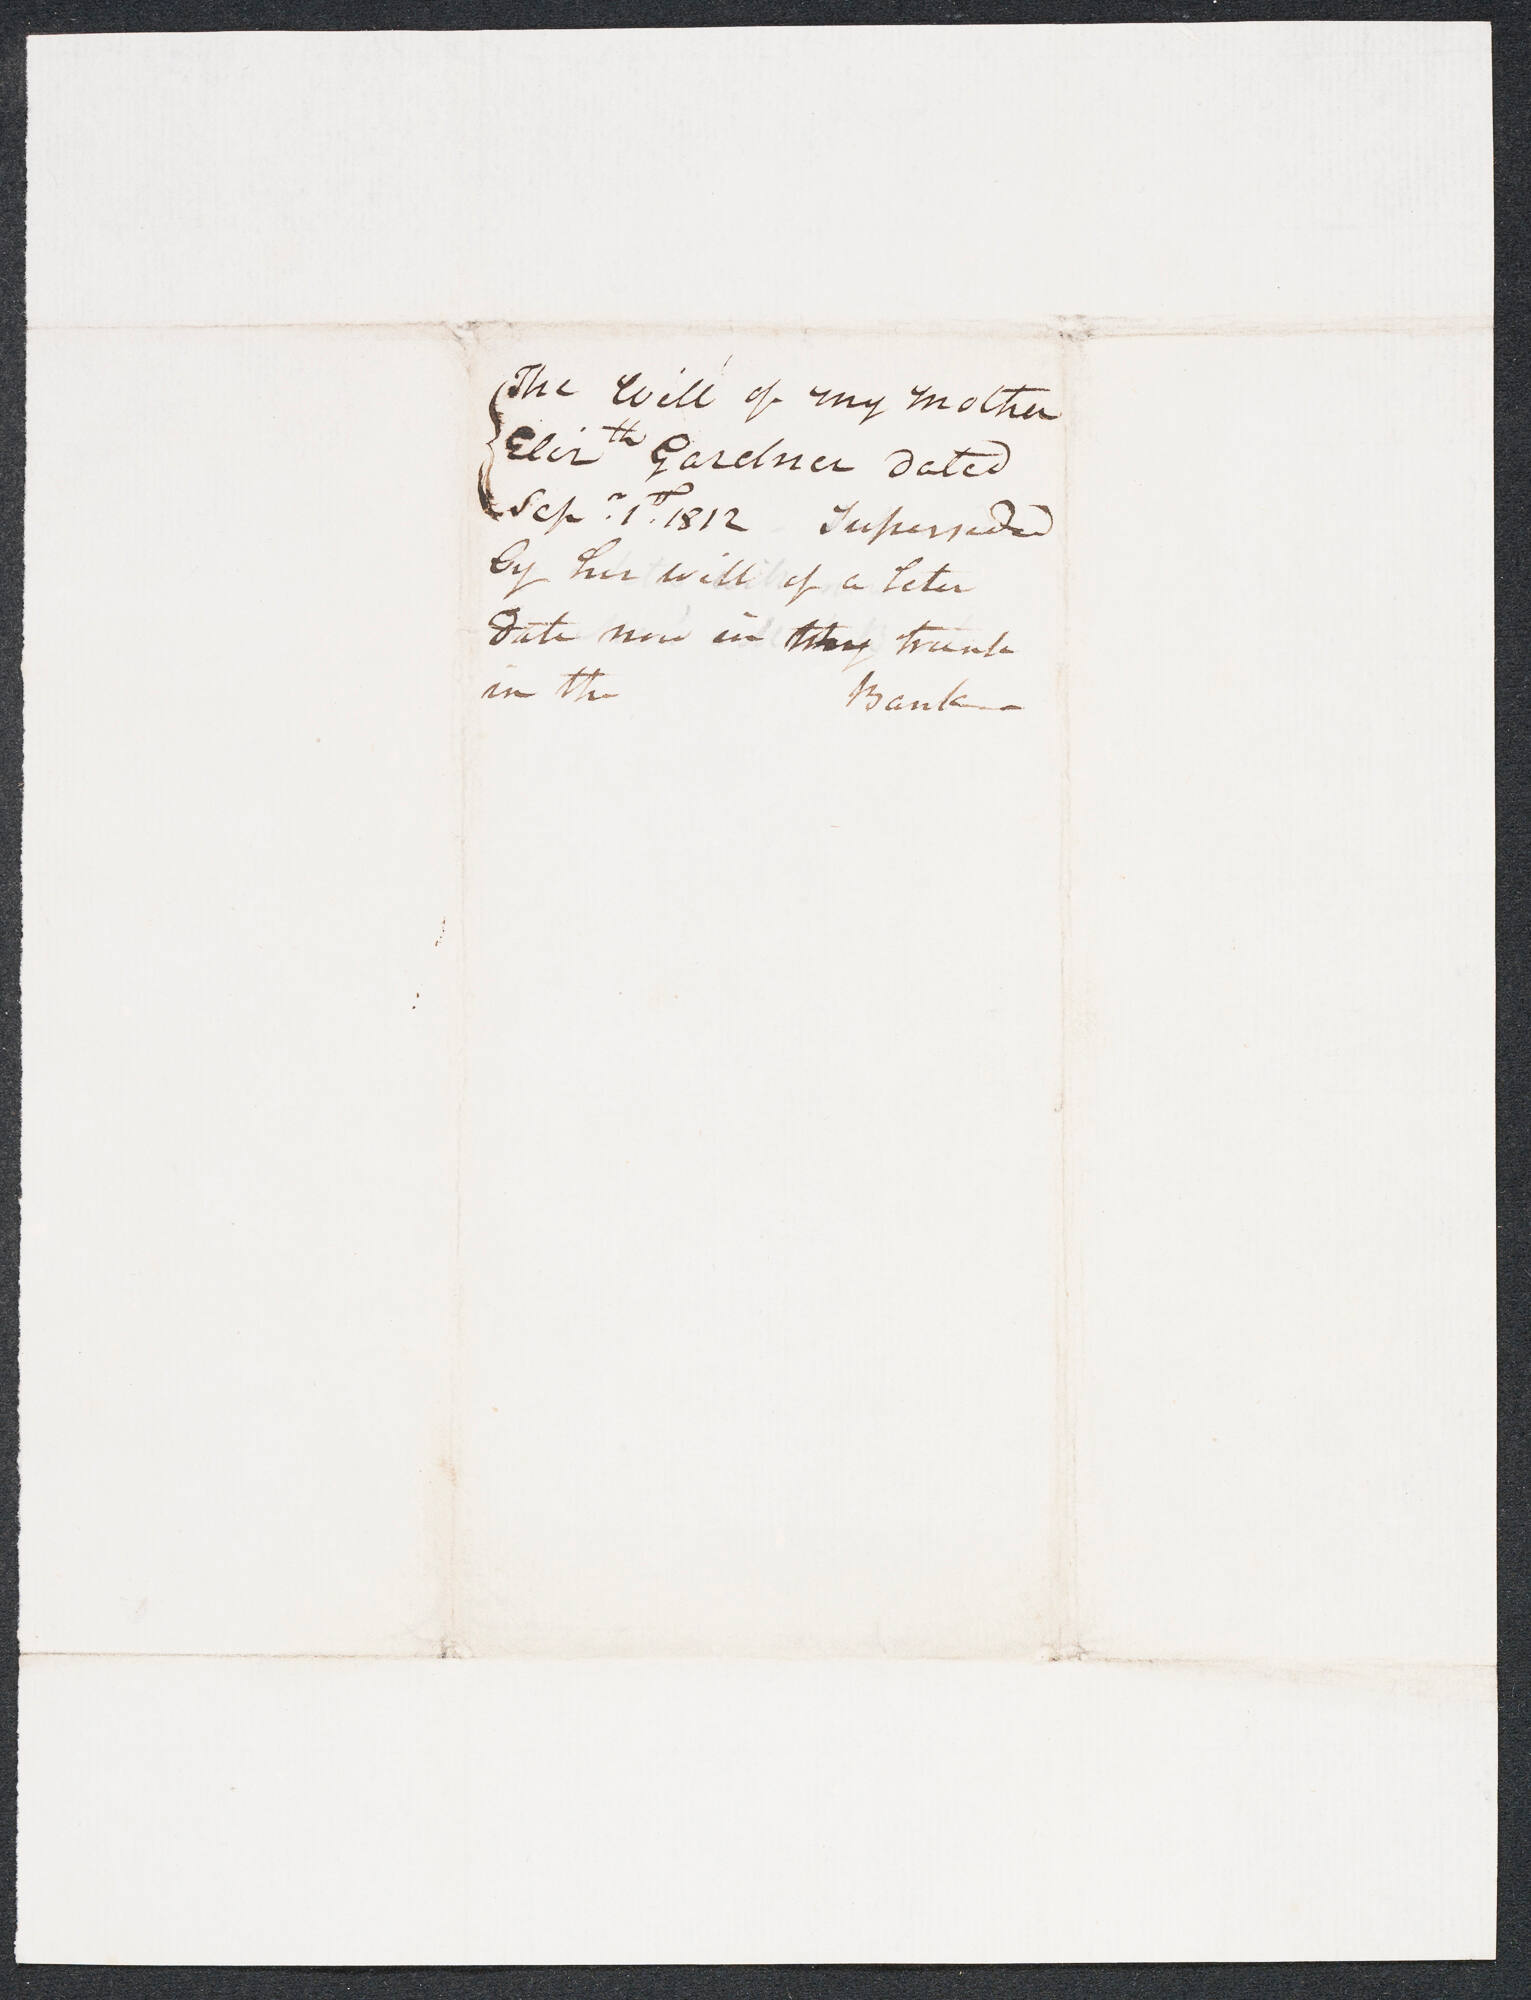 The Will of my Mother
Eliz.th Gardner dated
Sep.r 1st. 1812 Superseded
by her will of a later
date now in my trunk
in the Bank